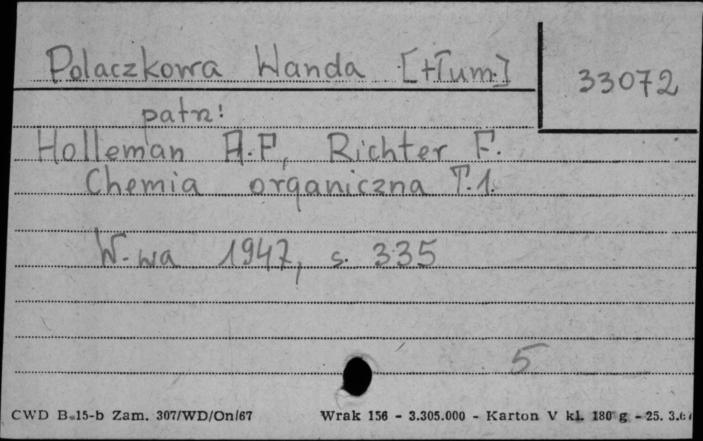 Polaczkowa Wanda [tłum.]
33072
patrz:
Holleman A.F, Richter F.
Chemia organiczna T.1.
W-wa 1947, s. 335
5
CWD B-15-b Zam. 307/WD/On/67 Wrak 156 - 3.305.000 - Karton V kl. 180 g - 25. 3.